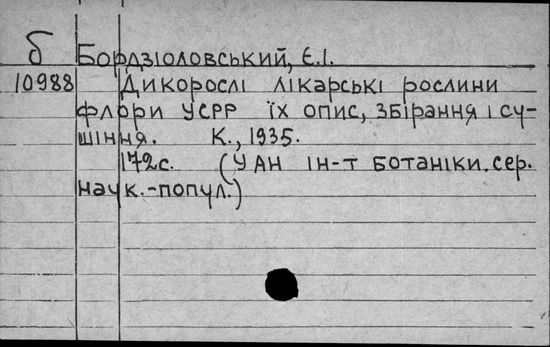 б
Бордзіоловський, Є.І.
10988 Дикорослі лікарські рослини
флори УСРР їх опис, збірання і су-
шіння. К., 1935.
172с. (УАН ін-т ботаніки. сер.
наук.-попул.)